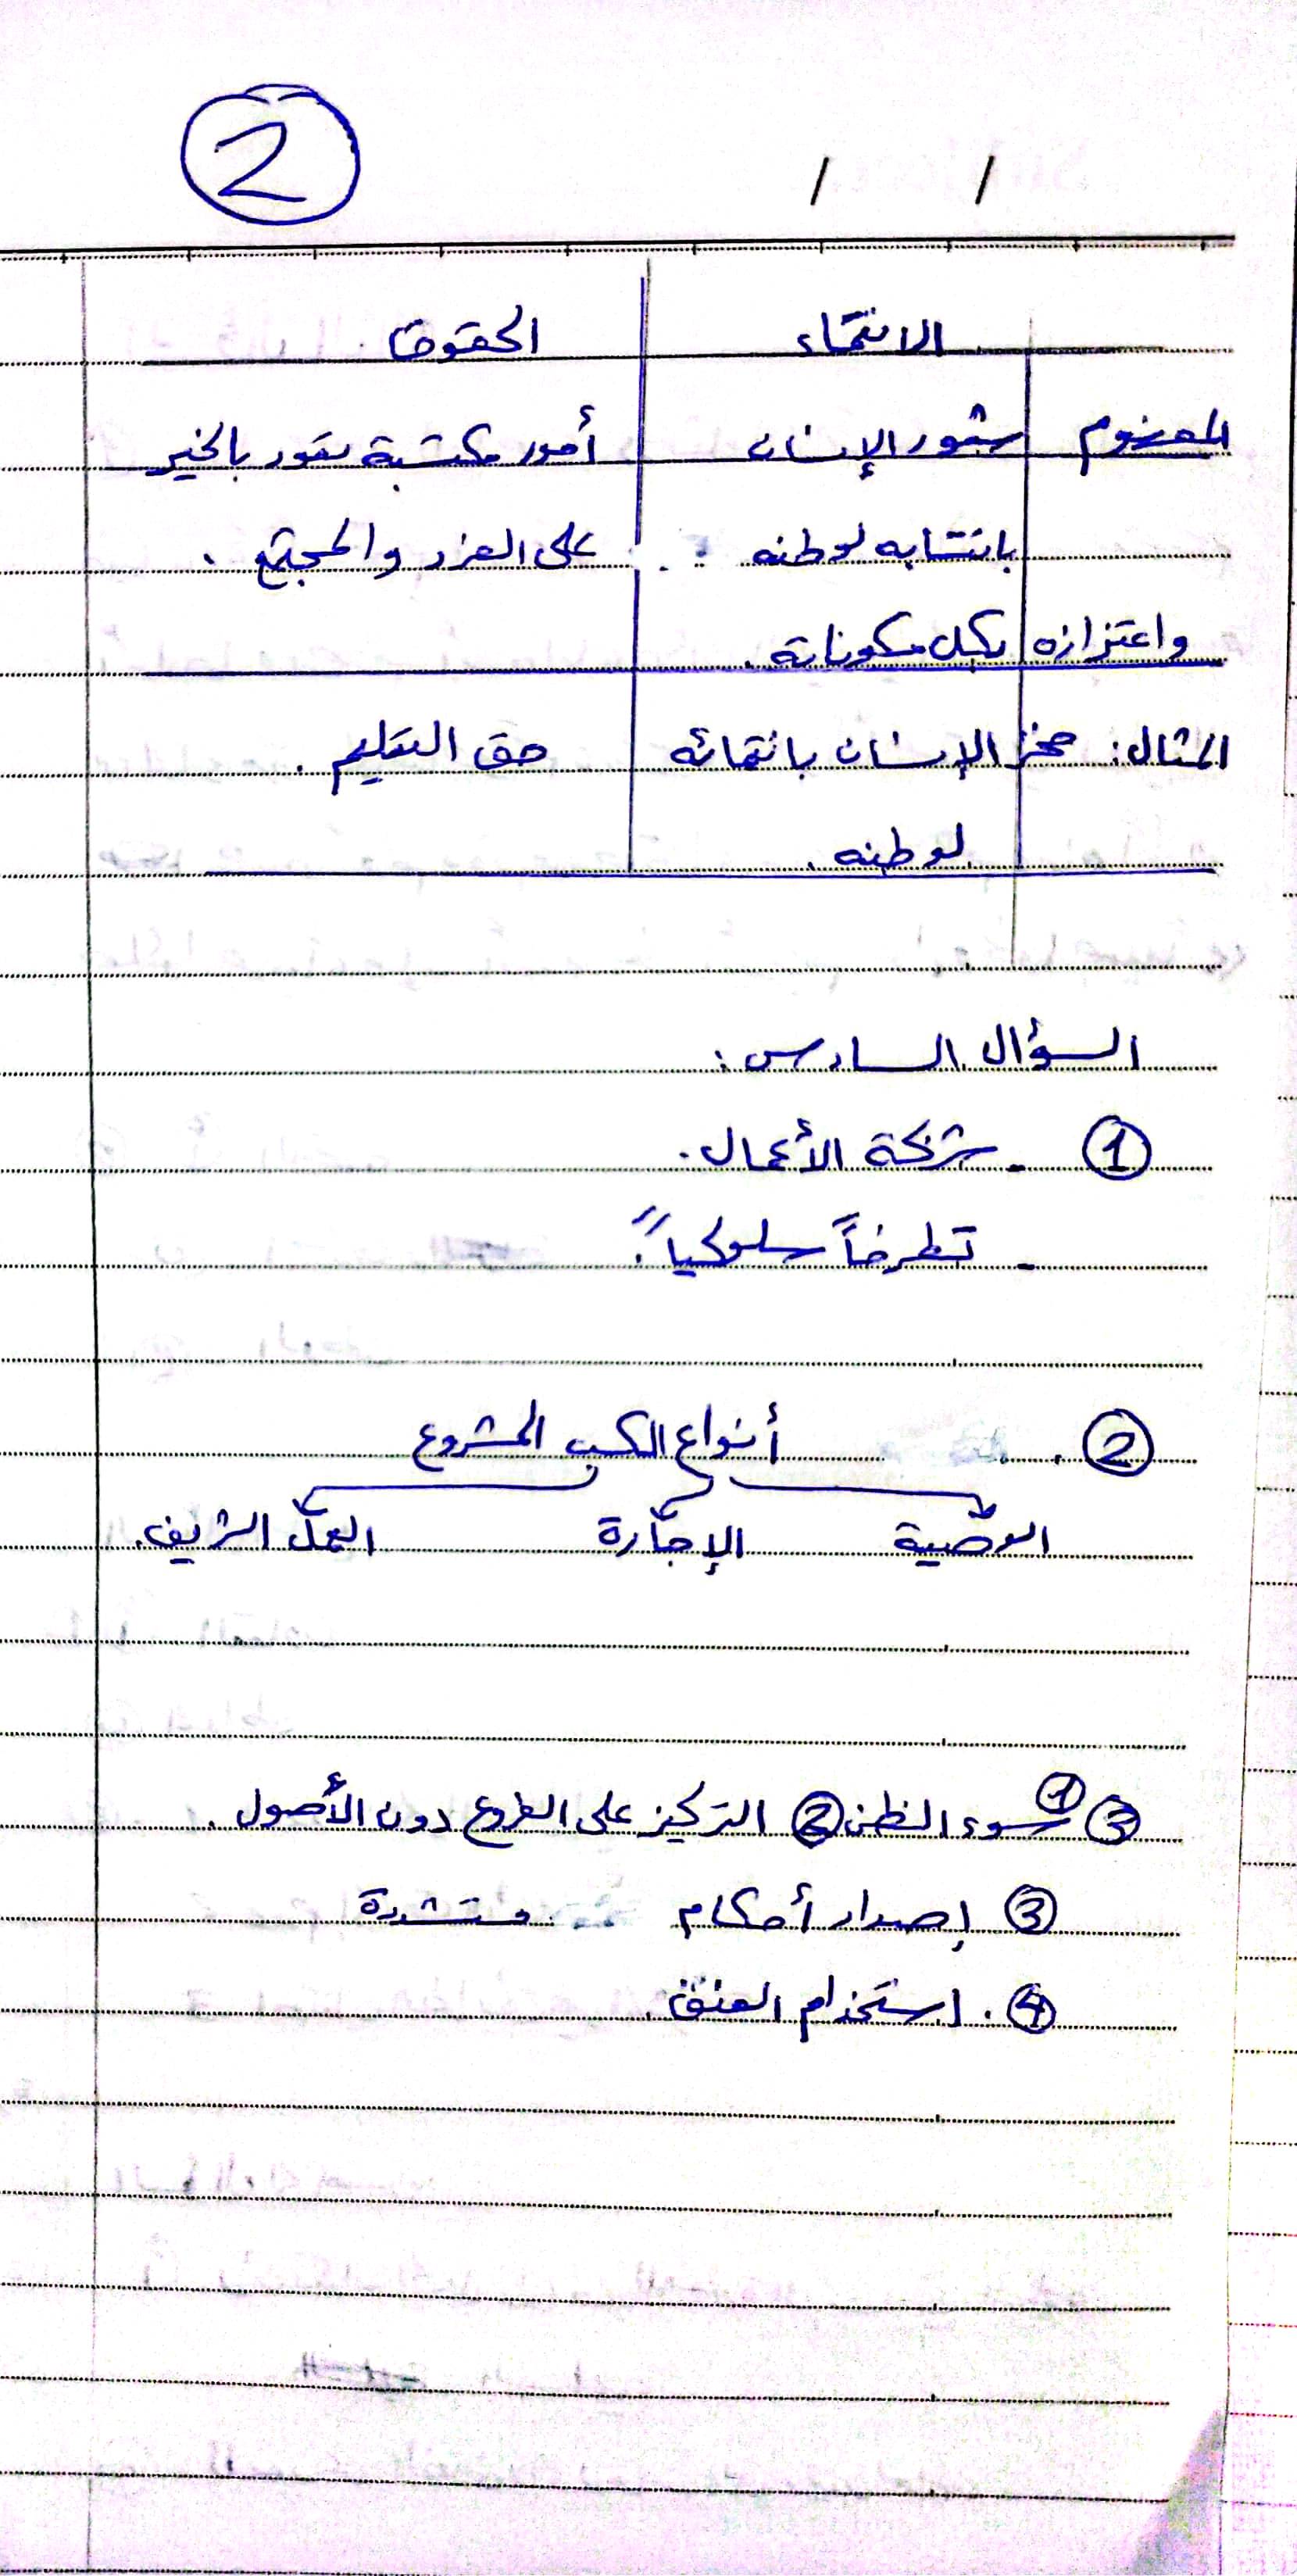 2
/ /
الانتماء الحقوق
المفهوم شعور الإنسان أمور مكتسبة تعود بالخير
بانتسابه لوطنه على الفرد والمجتمع.
واعتزازه بكل مكوناته.
المثال: فخر الإنسان بانتمائه حق التعليم.
لوطنه.
السؤال السادس:
1 - شركة الأعمال.
- تطرفاً سلوكياً.
2. أنواع الكسب المشروع
الوصية الإجارة العمل الشريف.
3 1 سوء الظن 2 التركيز على الفروع دون الأصول.
3 إصدار أحكام متشددة
4. استخدام العنف.